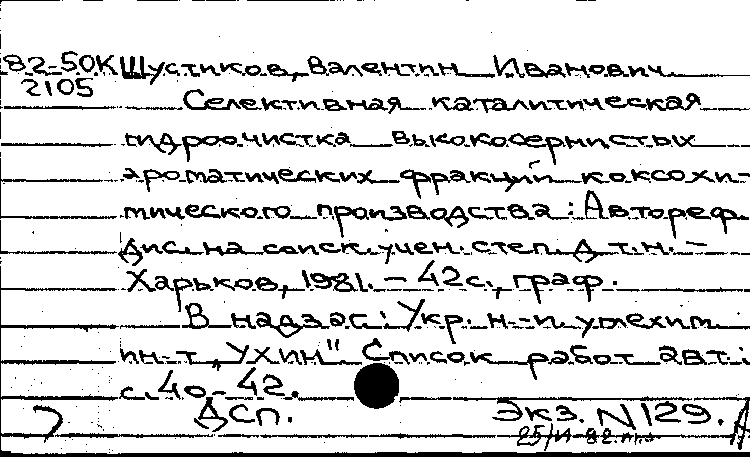 82-50К Шустиков, Валентин Иванович.
2105
Селективная каталитическая
гидроочистка высокосернистых
ароматических фракций коксохи-
мического производства: Автореф.
дис. на соиск. учен. степ. д.т.н. -
Харьков, 1981. - 42 с., граф.
В надзаг.: Укр. н.-и. углехим.
ин-т „УХИН". Список работ авт.:
с. 40-42.
ДСП. Экз. N 129.